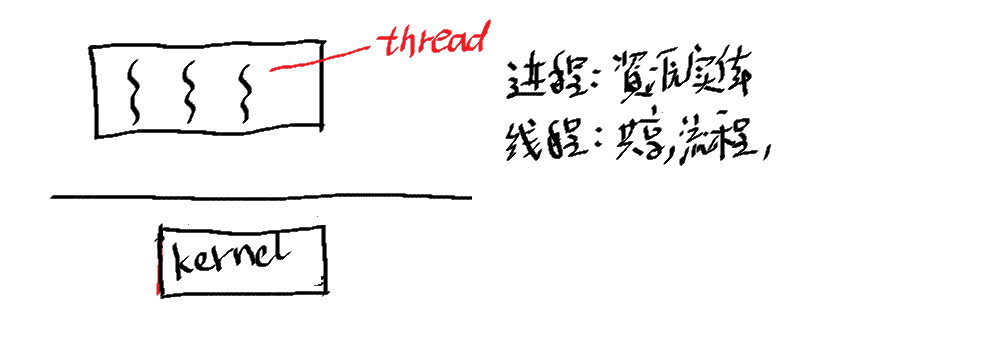 thread
进程：資源实体
线程：共享，流程，
kernel